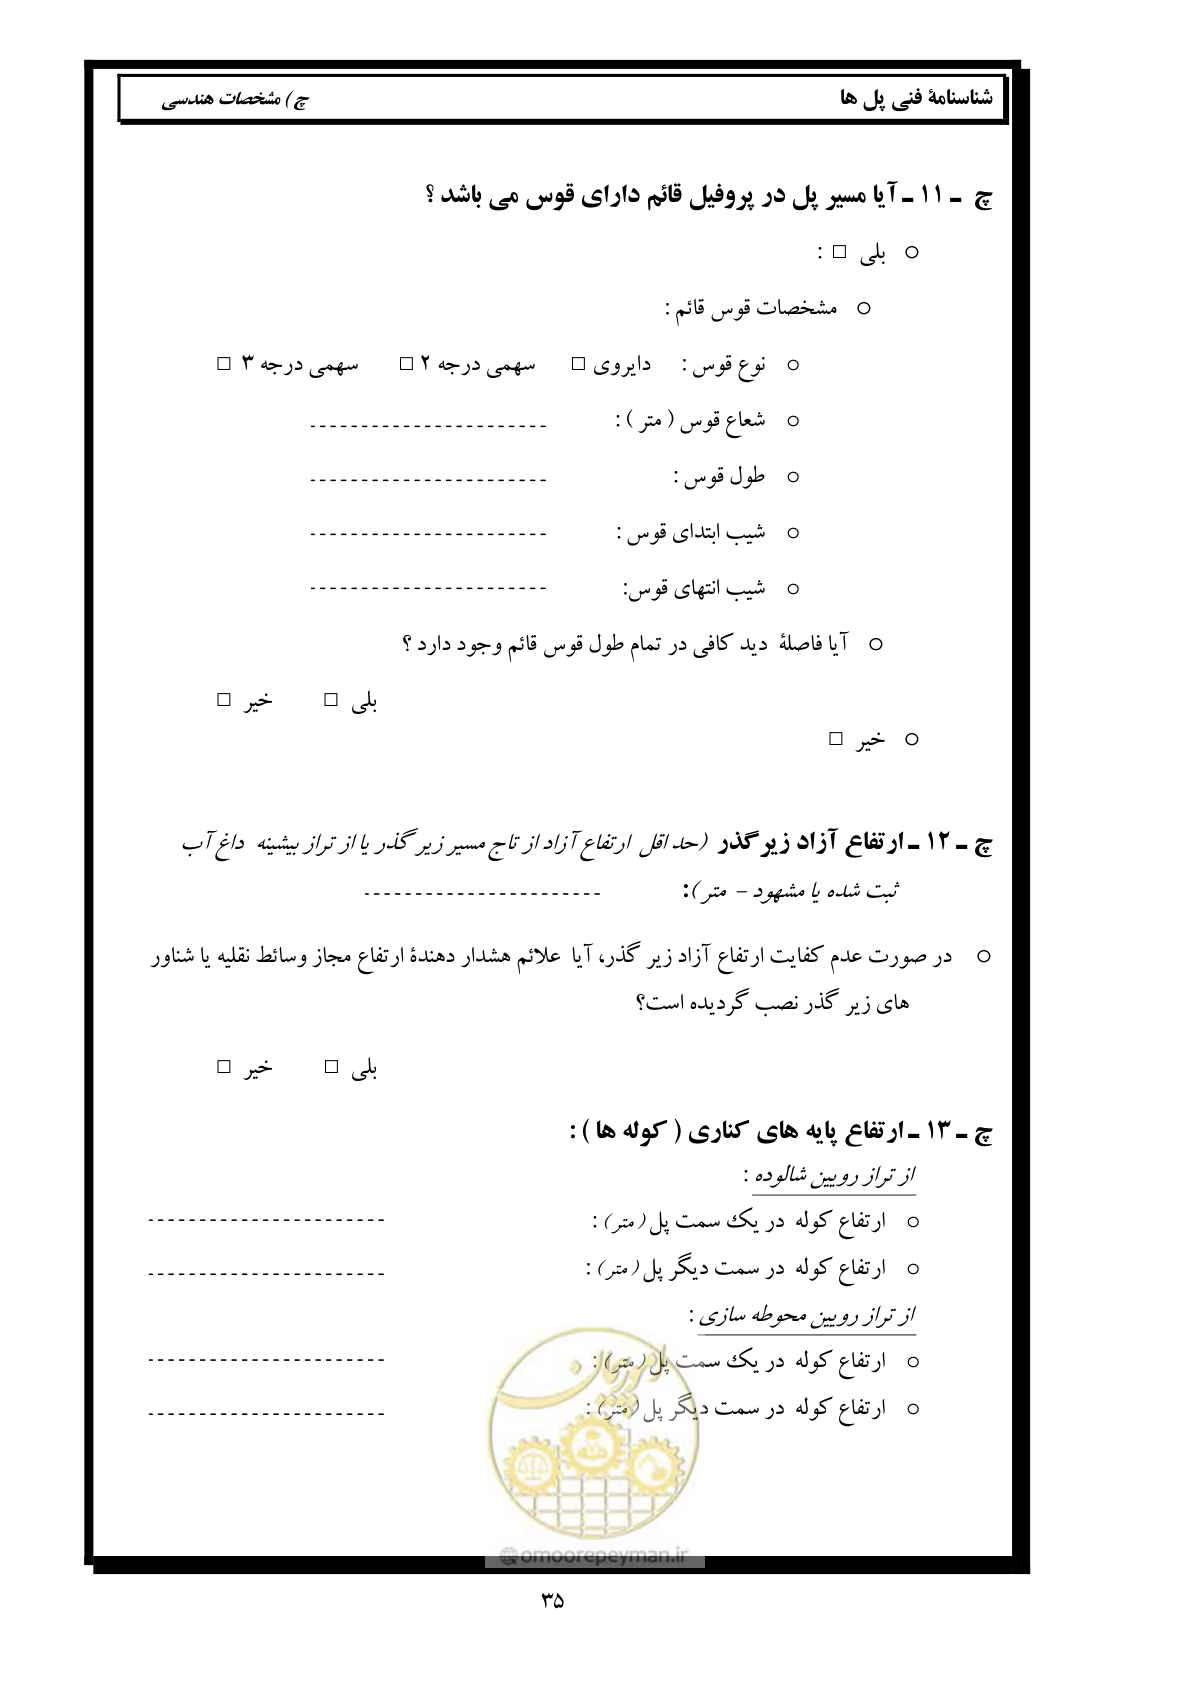 شناسنامهٔ فنی پل ها
چ) مشخصات هندسی
چ ـ ۱۱ ـ آیا مسیر پل در پروفیل قائم دارای قوس می باشد ؟
○ بلی □ :
○ مشخصات قوس قائم :
○ نوع قوس : دایروی □ سهمی درجه ۲ □ سهمی درجه ۳ □
○ شعاع قوس ( متر ) : -----------------------
○ طول قوس : -----------------------
○ شیب ابتدای قوس : -----------------------
○ شیب انتهای قوس: -----------------------
○ آیا فاصلهٔ دید کافی در تمام طول قوس قائم وجود دارد ؟
بلی □ خیر □
○ خیر □
چ ـ ۱۲ ـ ارتفاع آزاد زیرگذر (حد اقل ارتفاع آزاد از تاج مسیر زیر گذر یا از تراز بیشینه داغ آب
ثبت شده یا مشهود – متر): -----------------------
○ در صورت عدم کفایت ارتفاع آزاد زیر گذر، آیا علائم هشدار دهندهٔ ارتفاع مجاز وسائط نقلیه یا شناور
های زیر گذر نصب گردیده است؟
بلی □ خیر □
چ ـ ۱۳ ـ ارتفاع پایه های کناری ( کوله ها ) :
از تراز رویین شالوده :
○ ارتفاع کوله در یک سمت پل ( متر) : -----------------------
○ ارتفاع کوله در سمت دیگر پل ( متر) : -----------------------
از تراز رویین محوطه سازی :
○ ارتفاع کوله در یک سمت پل ( متر) : -----------------------
○ ارتفاع کوله در سمت دیگر پل ( متر) : -----------------------
امور پیمان
@omoorepeyman.ir
۳۵